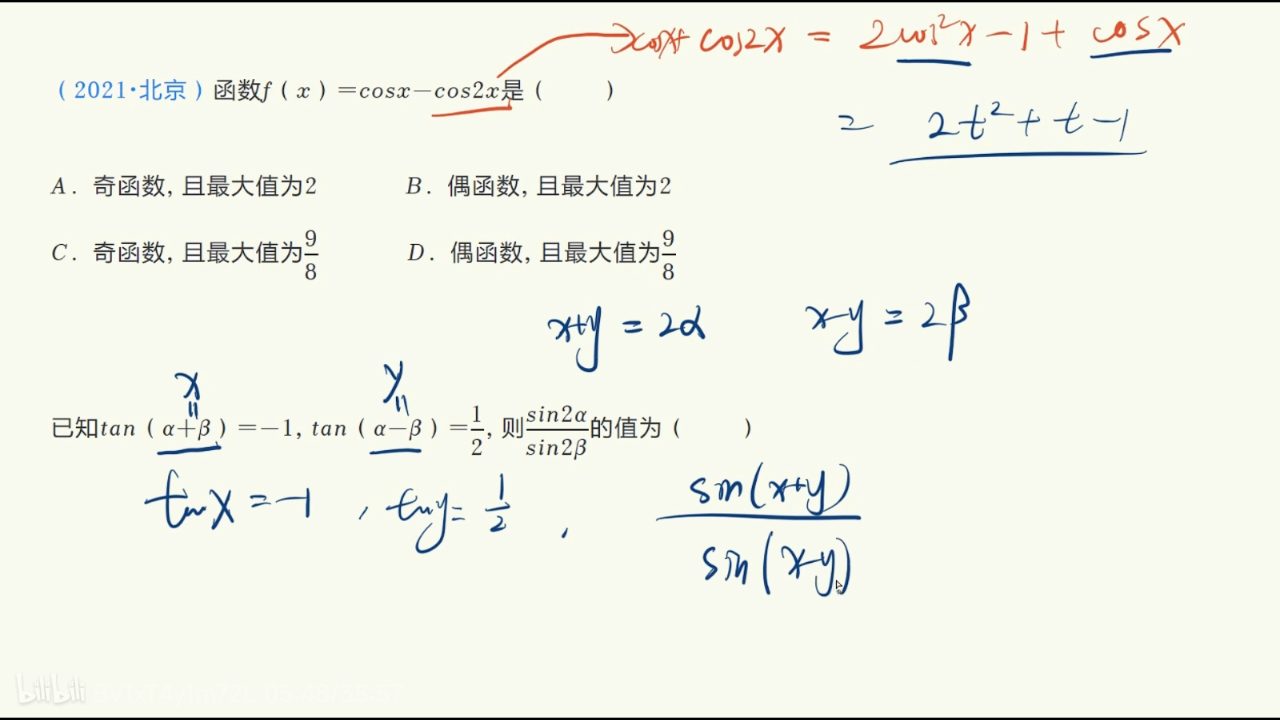 cosx+ cos2x = 2cos²x-1+ cosx
(2021·北京)函数f(x)=cosx-cos2x是(  )
= 2t²+t-1
A. 奇函数, 且最大值为2 B. 偶函数, 且最大值为2
C. 奇函数, 且最大值为9/8 D. 偶函数, 且最大值为9/8
x+y = 2α x-y = 2β
x y
= =
已知tan(α+β)=-1, tan(α-β)=1/2, 则sin2α/sin2β的值为(  )
tanx = -1 , tany = 1/2 , sin(x+y)/sin(x-y)
bilibili